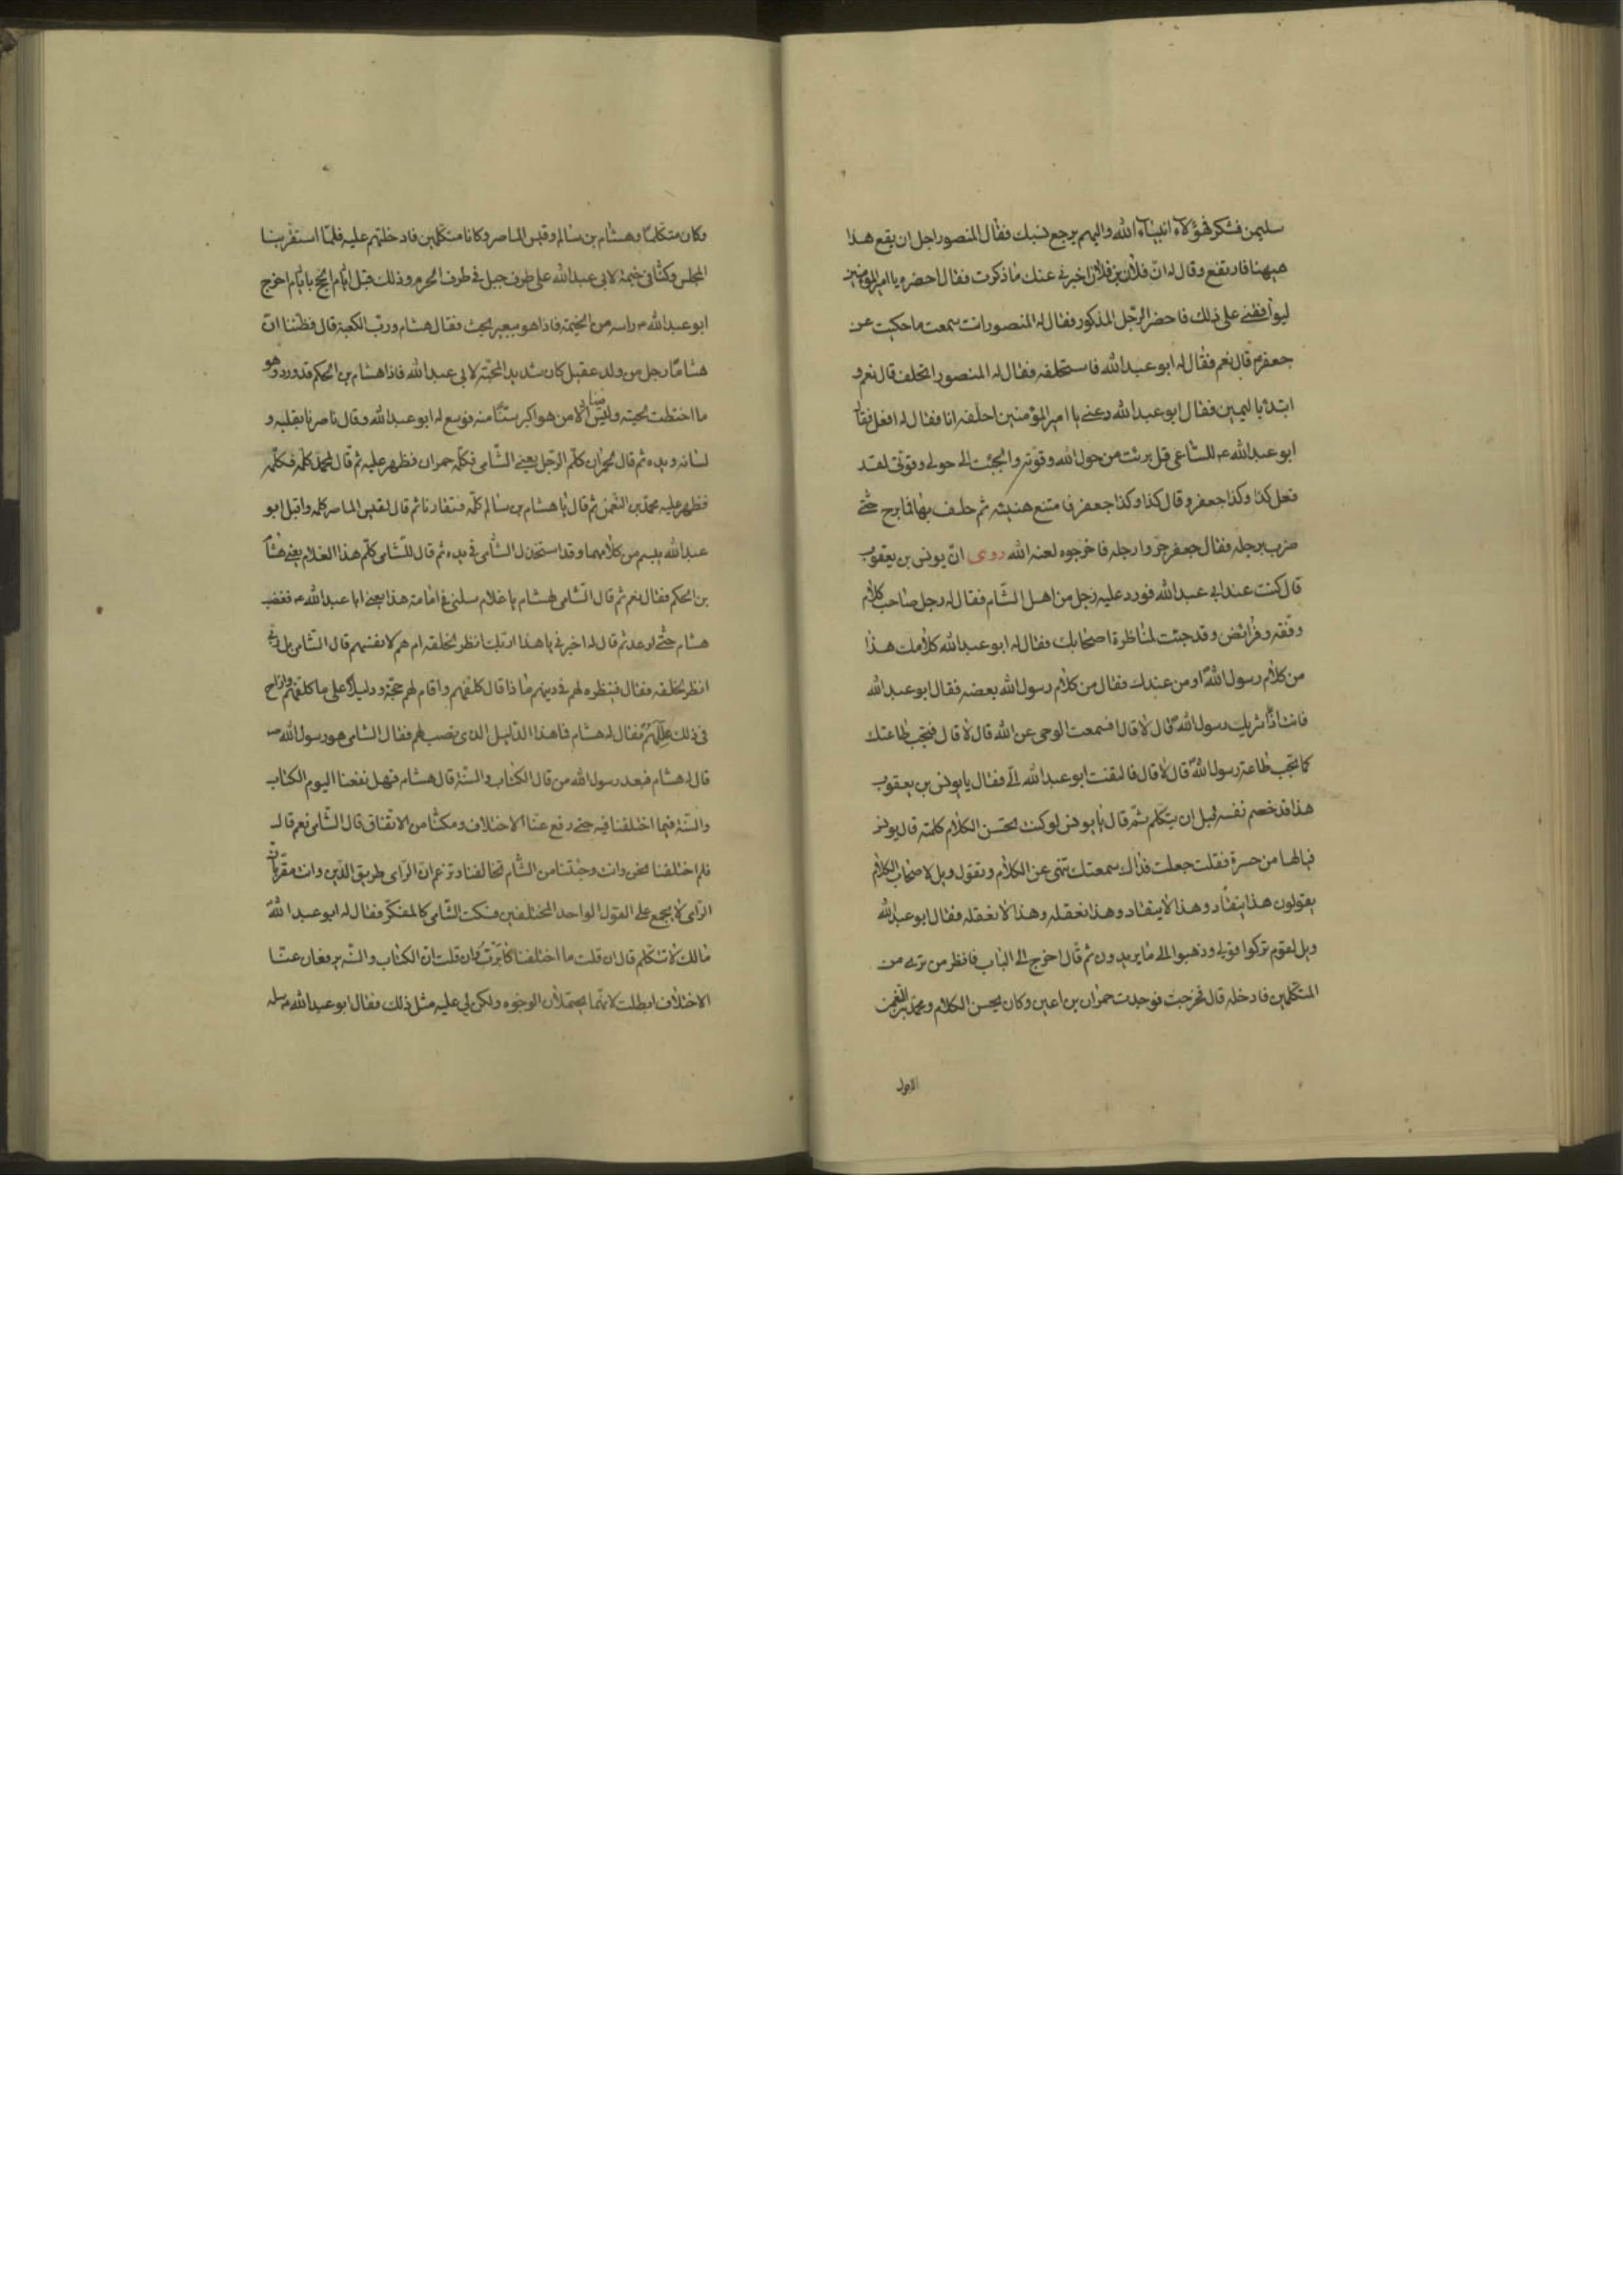 سليمن فشكر فهؤلاء انبياء الله واليهم يرجع نسبك فقال المنصور اجل ان يقع هذا
هيهنا فارتفع وقال له ان فلان بن فلان اخبرني عنك ما ذكرت فقال احضره يا امير المؤمنين
ليوافقني على ذلك فاحضر الرجل المذكور فقال له المنصور انت سمعت ما حكيت عن
جعفر قال نعم فقال له ابو عبد الله فاستحلفه فقال له المنصور اتحلف قال نعم و
ابتدأ باليمين فقال ابو عبد الله دعني يا امير المؤمنين احلفه انا فقال له افعل فقال
ابو عبد الله ع للساعي قل برئت من حول الله وقوته والجئت الى حولي وقوتي لقد
فعل كذا وكذا جعفر وقال كذا وكذا جعفر فامتنع هنيئة ثم حلف بها فما برح حتى
ضرب برجله فقال جعفر جروا رجله فاخرجوه لعنه الله روى ان يونس بن يعقوب
قال كنت عند ابي عبد الله فورد عليه رجل من اهل الشام فقال له رجل صاحب كلام
وفقه وفرائض وقد جئت لمناظرة اصحابك فقال له ابو عبد الله كلامك هذا
من كلام رسول الله او من عندك فقال من كلام رسول الله بعضه فقال ابو عبد الله
فانت اذا شريك رسول الله قال لا قال فسمعت الوحى عن الله قال لا قال فتجب طاعتك
كما تجب طاعة رسول الله قال لا قال فالتفت ابو عبد الله الي فقال يا يونس بن يعقوب
هذا قد خصم نفسه قبل ان يتكلم ثم قال يا يونس لو كنت تحسن الكلام كلمته قال يونس
فيالها من حسرة فقلت جعلت فداك سمعتك تنهى عن الكلام وتقول ويل لاصحاب الكلام
يقولون هذا ينقاد وهذا لا ينقاد وهذا نعقله وهذا لا نعقله فقال ابو عبد الله
ويل لقوم تركوا قولي وذهبوا الى ما يريدون ثم قال اخرج الى الباب فانظر من ترى من
المتكلمين فادخله قال فخرجت فوجدت حمران بن اعين وكان يحسن الكلام ومحمد بن النعمن
الاحول
وكان متكلما وهشام بن سالم وقيس الماصر وكانا متكلمين فادخلتهم عليه فلما استقر بنا
المجلس وكنا في خيمة لابي عبد الله على طرف جبل في طرف الحرم وذلك قبل ايام الحج بايام اخرج
ابو عبد الله ع راسه من الخيمة فاذا هو ببعير يخب فقال هشام ورب الكعبة قال فظننا ان
هشاما رجل من ولد عقيل كان شديد المحبة لابي عبد الله فاذا هشام بن الحكم قد ورد وهو
ما اختطت لحيته وليس فينا الا من هو اكبر سنا منه فوسع له ابو عبد الله وقال ناصرنا بقلبه و
لسانه ويده ثم قال لحمران كلم الرجل يعني الشامى فكلمه حمران فظهر عليه ثم قال لمحمد كلمه فكلمه
فظهر عليه محمد بن النعمن ثم قال يا هشام بن سالم كلمه فتعارفا ثم قال لقيس الماصر كلمه واقبل ابو
عبد الله يتبسم من كلامهما وقد استخذل الشامى في يده ثم قال للشامى كلم هذا الغلام يعني هشام
بن الحكم فقال نعم ثم قال الشامى لهشام يا غلام سلني في امامة هذا يعني ابا عبد الله ع فغضب
هشام حتى ارعد ثم قال له اخبرني يا هذا اربك انظر لخلقه ام هم لانفسهم قال الشامى بل ربي
انظر لخلقه فقال فبنظره لهم في دينهم ما ذا قال كلفهم واقام لهم حجة ودليلا على ما كلفهم وازاح
في ذلك عللهم فقال له هشام فما هذا الدليل الذي نصب لهم فقال الشامى هو رسول الله ص
قال له هشام فبعد رسول الله من قال الكتاب والسنة قال هشام فهل نفعنا اليوم الكتاب
والسنة فيما اختلفنا فيه حتى رفع عنا الاختلاف ومكنا من الاتفاق قال الشامى نعم قال
فلم اختلفنا نحن وانت وجئتنا من الشام تخالفنا وتزعم ان الراى طريق الدين وانت مقر بان
الراى لا يجمع على القول الواحد المختلفين فسكت الشامى كالمفكر فقال له ابو عبد الله
مالك لا تتكلم قال ان قلت ما اختلفنا كابرت وان قلت ان الكتاب والسنة يرفعان عنا
الاختلاف ابطلت لانهما يحتملان الوجوه ولكن لي عليه مثل ذلك فقال ابو عبد الله ع سله